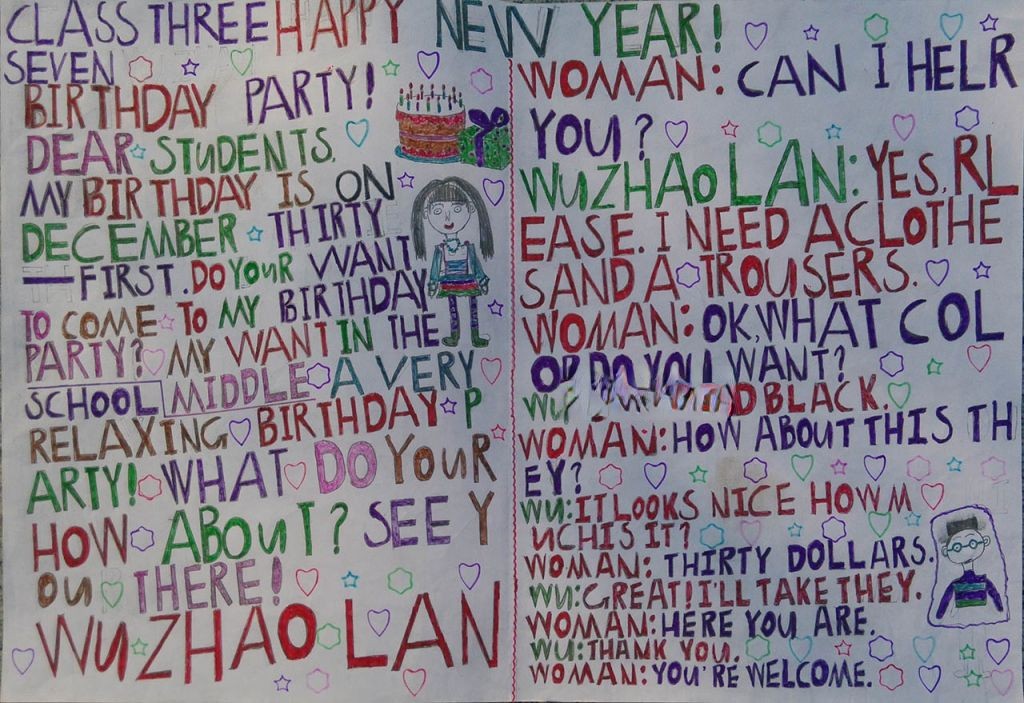 CLASS THREE HAPPY NEW YEAR!
SEVEN
BIRTHDAY PARTY!
DEAR STUDENTS.
MY BIRTHDAY IS ON
DECEMBER THIRTY
—FIRST. DO YOUR WANT
TO COME TO MY BIRTHDAY
PARTY? MY WANT IN THE
SCHOOL MIDDLE A VERY
RELAXING BIRTHDAY P
ARTY! WHAT DO YOUR
HOW ABOUT? SEE Y
OU THERE!
WUZHAO LAN
WOMAN: CAN I HELR
YOU?
WUZHAO LAN: YES, RL
EASE. I NEED ACLOTHE
SAND A TROUSERS.
WOMAN: OK, WHAT COL
OR DO YOU WANT?
WU D BLACK.
WOMAN: HOW ABOUT THIS TH
EY?
WU: IT LOOKS NICE HOW M
UCH IS IT?
WOMAN: THIRTY DOLLARS.
WU: GREAT! I'LL TAKE THEY.
WOMAN: HERE YOU ARE.
WU: THANK YOU.
WOMAN: YOU'RE WELCOME.